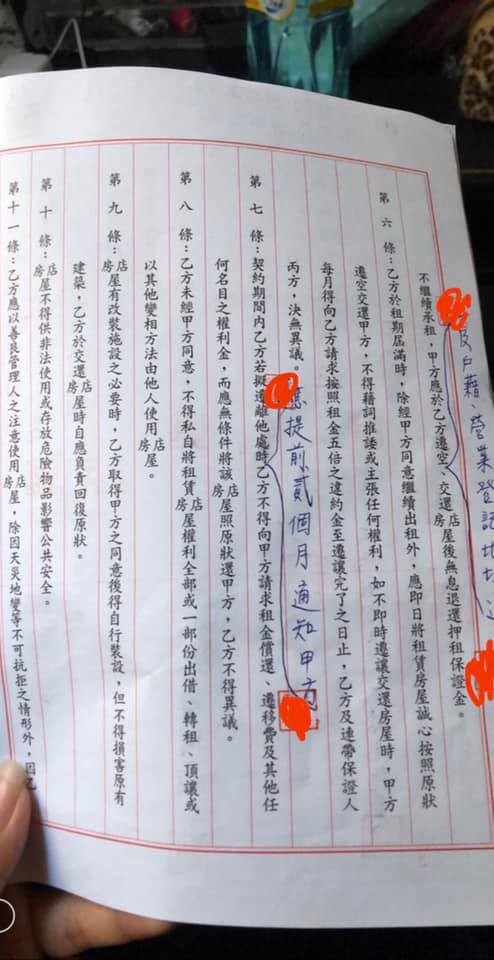 及戶藉、營業登記地址
不繼續承租，甲方應於乙方遷空、交還店房屋後無息退還押租保證金。
第六條：乙方於租期屆滿時，除經甲方同意繼續出租外，應即日將租賃房屋誠心按照原狀
遷空交還甲方，不得藉詞推諉或主張任何權利，如不即時遷讓交還房屋時，甲方
每月得向乙方請求按照租金五倍之違約金至遷讓完了之日止，乙方及連帶保證人
丙方，決無異議。
應提前貳個月通知甲方
第七條：契約期間內乙方若擬遷離他處時乙方不得向甲方請求租金償還、遷移費及其他任
何名目之權利金，而應無條件將該店房屋照原狀還甲方，乙方不得異議。
第八條：乙方未經甲方同意，不得私自將租賃店房屋權利全部或一部份出借、轉租、頂讓或
以其他變相方法由他人使用店房屋。
第九條：店房屋有改裝施設之必要時，乙方取得甲方之同意後得自行裝設，但不得損害原有
建築，乙方於交還店房屋時自應負責回復原狀。
第十條：店房屋不得供非法使用或存放危險物品影響公共安全。
第十一條：乙方應以善良管理人之注意使用店房屋，除因天災地變等不可抗拒之情形外，因乙